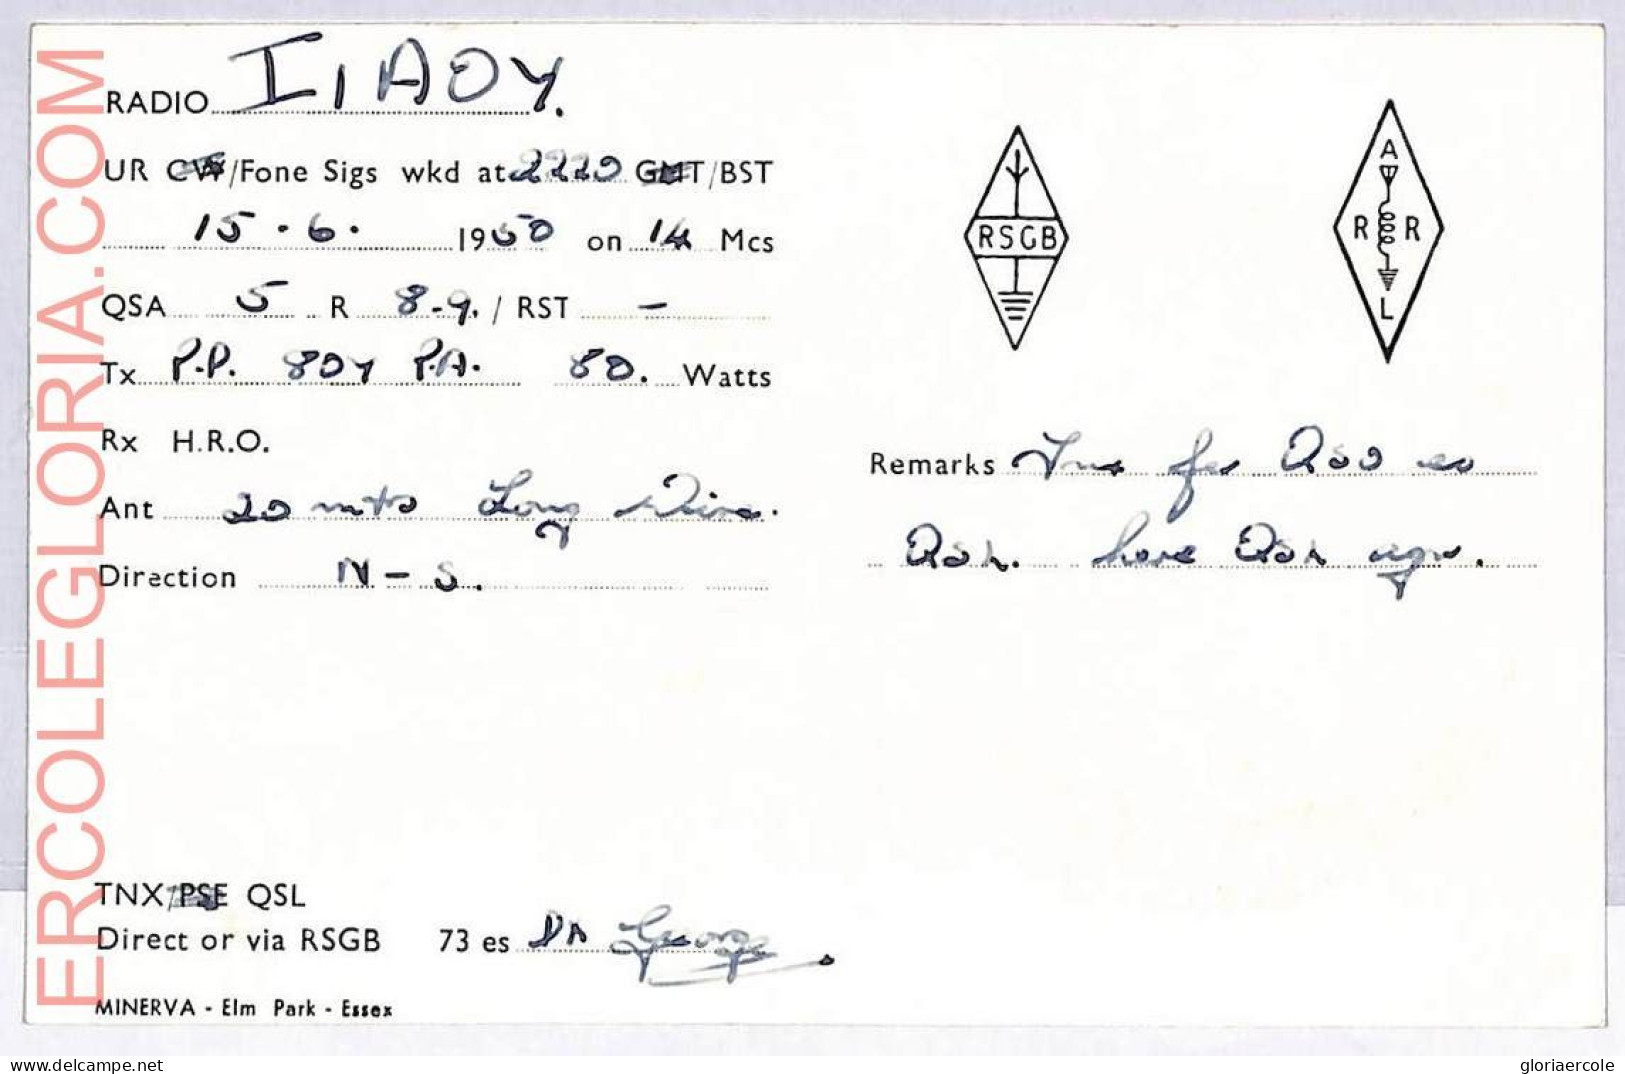 RADIO I1AOY.
UR CW/Fone Sigs wkd at 2220 GMT/BST
15 . 6 . 1950 on 14 Mcs
QSA 5 R 8-9. / RST -
Tx P.P. 807 P.A. 80. Watts
Rx H.R.O.
Ant 20 mts Long Wire.
Direction N - S.
TNX/PSE QSL
Direct or via RSGB 73 es DX George.
MINERVA - Elm Park - Essex
RSGB
A
R R
L
Remarks Tnx fer QSO es
QSL. hare QSL agn.
ERCOLEGLORIA.COM
delcampe.net
gloriaercole